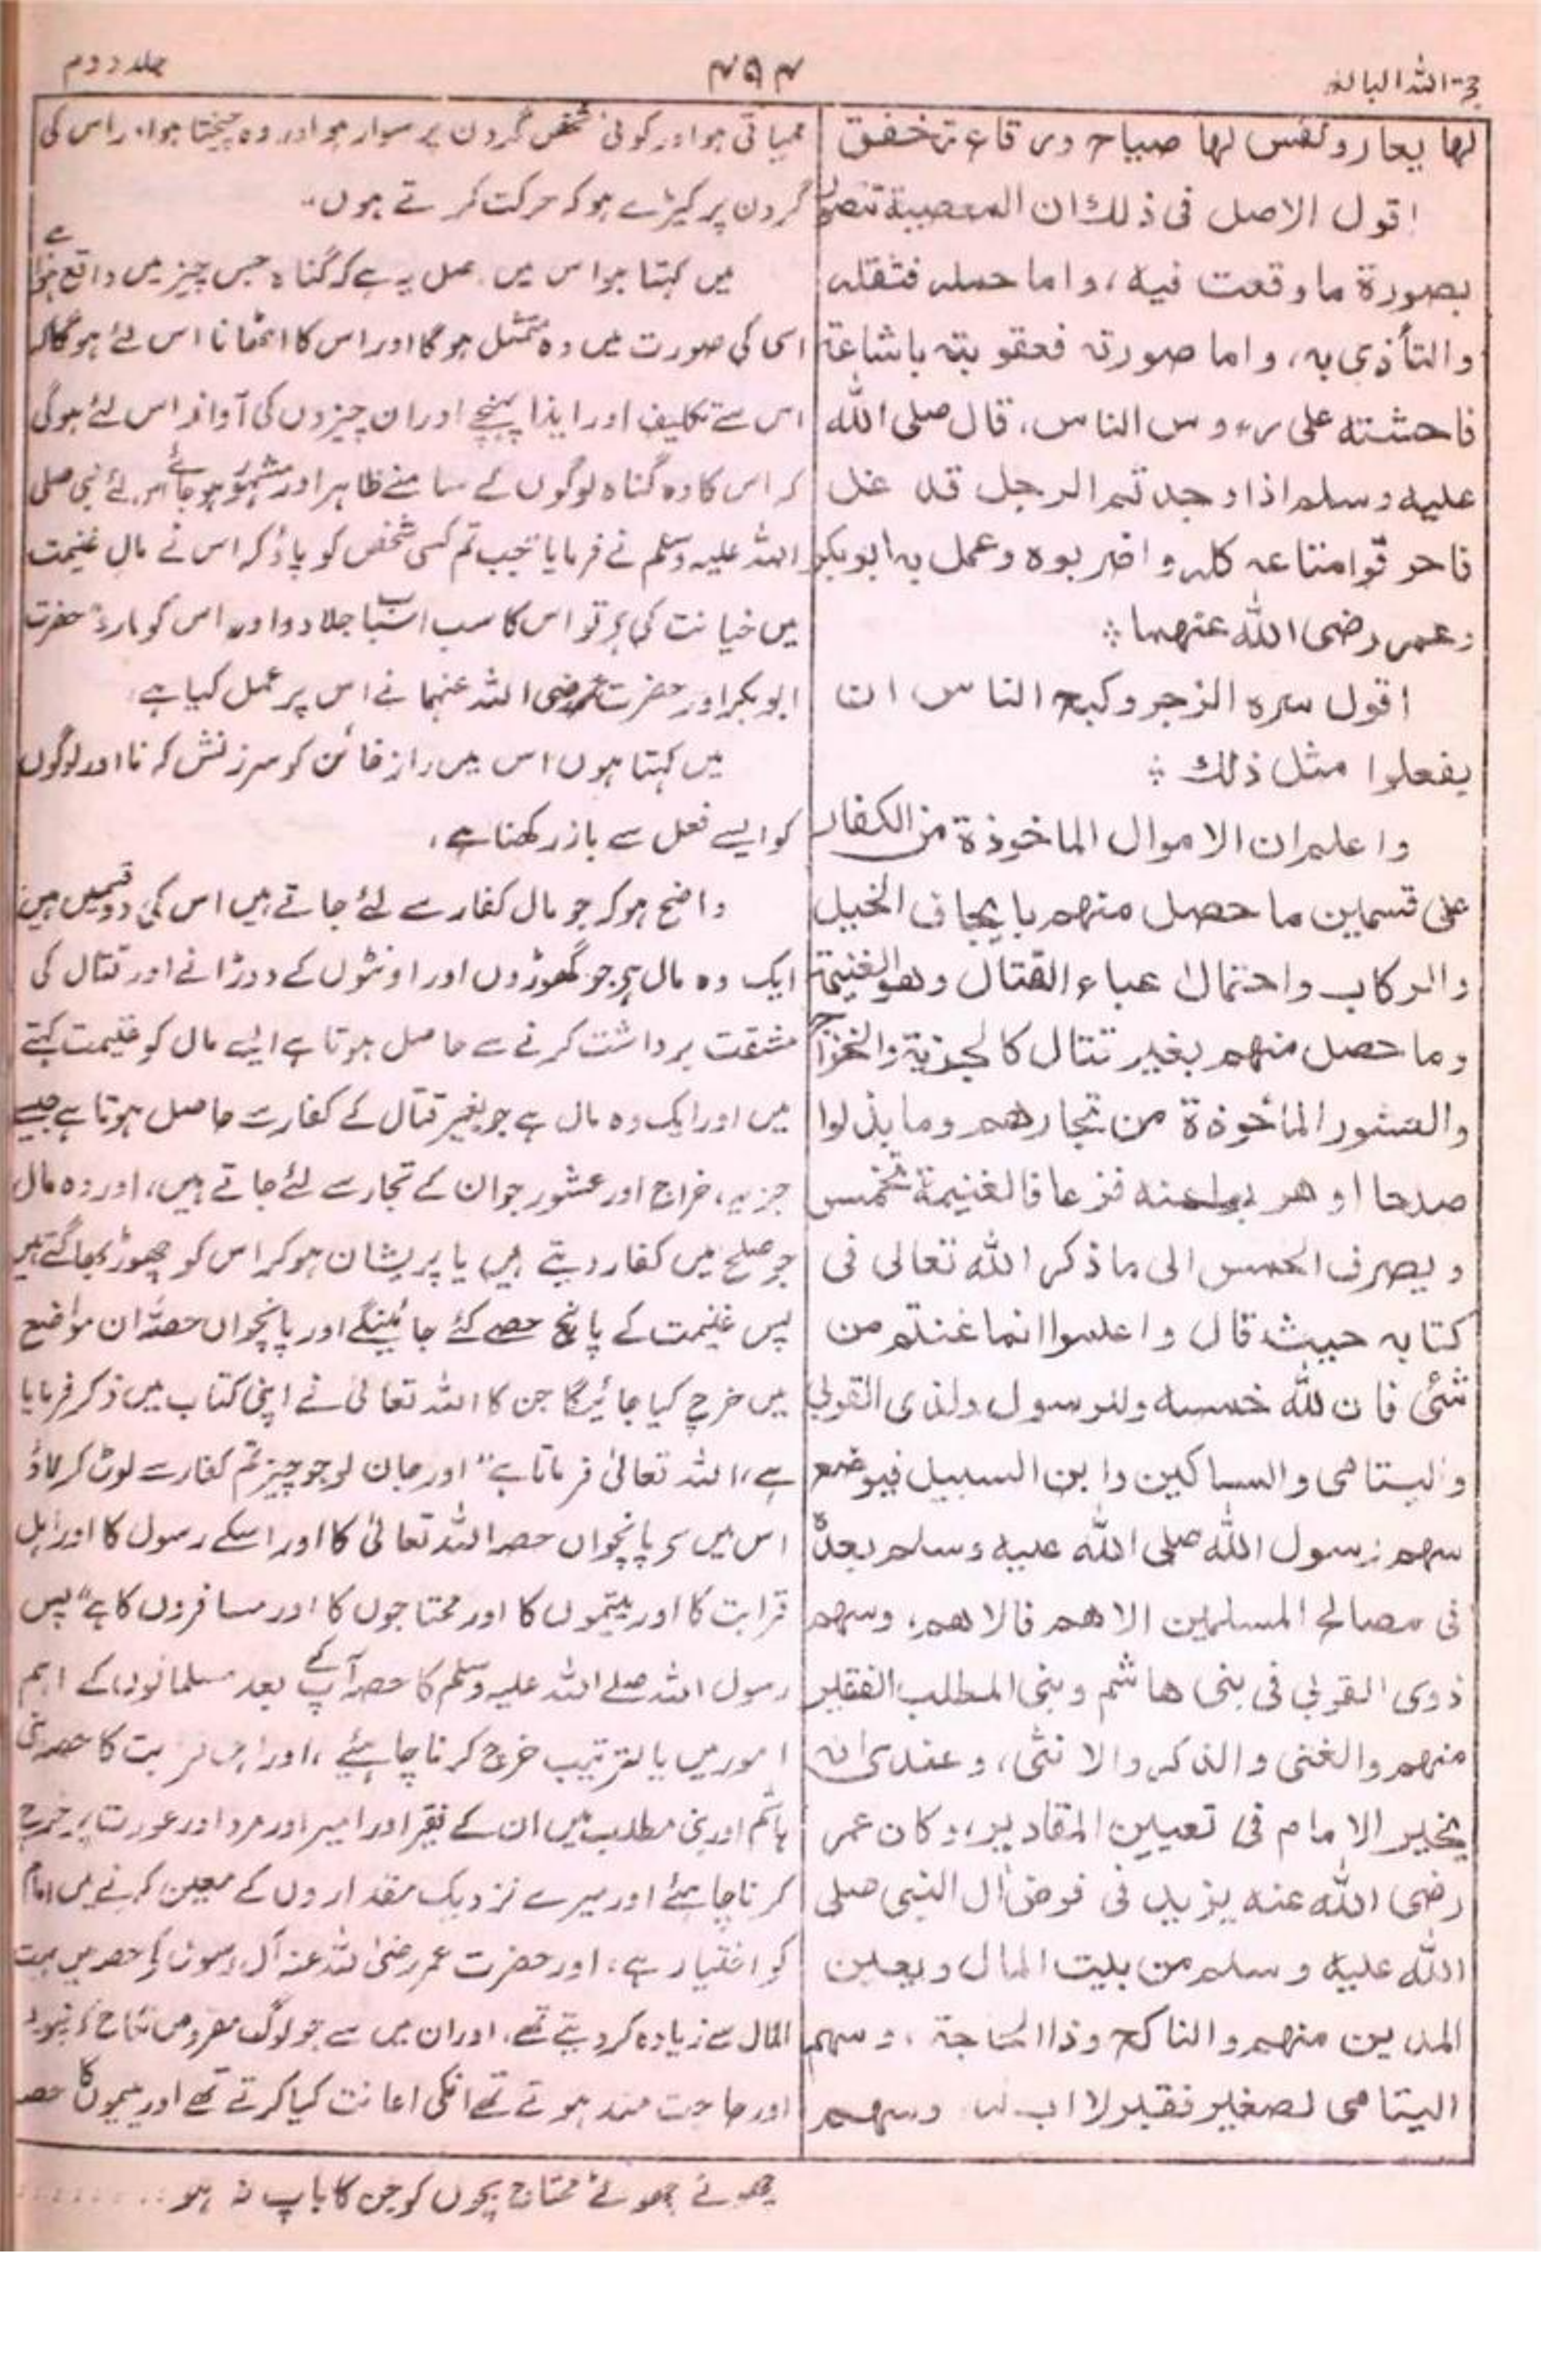 حجة اللہ البالغہ
۴۹۴
جلد دوم
لها يعار ونفس لها صياح ورقاع تخفق
اقول الاصل فى ذلك ان المعصية تتصور
بصورة ما وقعت فيه، واما حمله فثقله
والتأذى به، واما صورته فعقوبته باشاعة
فاحشته على رءوس الناس، قال صلى الله
عليه وسلم اذا وجدتم الرجل قد غل
فاحرقوا متاعه كله واضربوه وعمل به ابوبكر
وعمر رضى الله عنهما ؞
اقول سره الزجر وكبح الناس ان
يفعلوا مثل ذلك ؞
واعلم ان الاموال الماخوذة من الكفار
على قسمين ما حصل منهم بايجاف الخيل
والركاب واحتمال عباء القتال وهو الغنيمة
وما حصل منهم بغير قتال كالجزية والخراج
والعشور المأخوذة من تجارهم وما بذلوا
صلحا او هربوا عنه فزعا فالغنيمة تخمس
ويصرف الخمس الى ما ذكر الله تعالى فى
كتابه حيث قال واعلموا انما غنتم من
شئ فان لله خمسه وللرسول ولذى القربى
واليتامى والمساكين وابن السبيل فيوضع
سهم رسول الله صلى الله عليه وسلم بعده
فى مصالح المسلمين الاهم فالاهم، وسهم
ذوى القربى فى بنى هاشم وبنى المطلب الفقير
منهم والغنى والذكر والانثى، وعندى انه
يخير الامام فى تعيين المقادير، وكان عمر
رضى الله عنه يزيد فى فرض آل النبى صلى
الله عليه وسلم من بيت المال ويعين
المدين منهم والناكح وذا الحاجة، وسهم
اليتامى لصغير فقير لا اب له، وسهم
ممیاتی ہو اور کوئی شخص گردن پر سوار ہو اور وہ چیختا ہو اور اس کی
گردن پر کپڑے ہو کہ حرکت کرتے ہوں۔"
میں کہتا ہوں اس میں اصل یہ ہے کہ گناہ جس چیز میں واقع ہوا ہے
اسی کی صورت میں وہ متمثل ہوگا اور اس کا اٹھانا اس لئے ہوگا کہ
اس سے تکلیف اور ایذا پہنچے اور ان چیزوں کی آواز اس لئے ہوگی
کہ اس کا وہ گناہ لوگوں کے سامنے ظاہر اور مشہور ہو جائے اس لئے نبی صلی
اللہ علیہ وسلم نے فرمایا "جب تم کسی شخص کو پاؤ کہ اس نے مال غنیمت
میں خیانت کی ہے تو اس کا سب اسباب جلا دو اور اس کو مارو" حضرت
ابوبکر اور حضرت عمر رضی اللہ عنہما نے اس پر عمل کیا ہے،
میں کہتا ہوں اس میں راز خائن کو سرزنش کرنا اور لوگوں
کو ایسے فعل سے باز رکھنا ہے،
واضح ہو کہ جو مال کفار سے لئے جاتے ہیں اس کی دو قسمیں ہیں
ایک وہ مال ہے جو گھوڑوں اور اونٹوں کے دوڑانے اور قتال کی
مشقت برداشت کرنے سے حاصل ہوتا ہے ایسے مال کو غنیمت کہتے
ہیں اور ایک وہ مال ہے جو بغیر قتال کے کفار سے حاصل ہوتا ہے جیسے
جزیہ، خراج اور عشور جو ان کے تجار سے لئے جاتے ہیں، اور وہ مال
جو صلح میں کفار دیتے ہیں یا پریشان ہو کر اس کو چھوڑ بھاگتے ہیں
پس غنیمت کے پانچ حصے کئے جائینگے اور پانچواں حصہ ان مواضع
میں خرچ کیا جائیگا جن کا اللہ تعالیٰ نے اپنی کتاب میں ذکر فرمایا
ہے، اللہ تعالیٰ فرماتا ہے "اور جان لو جو چیز تم کفار سے لوٹ کر لاؤ
اس میں سے پانچواں حصہ اللہ تعالیٰ کا اور اسکے رسول کا اور اہل
قرابت کا اور یتیموں کا اور محتاجوں کا اور مسافروں کا ہے" پس
رسول اللہ صلے اللہ علیہ وسلم کا حصہ آپ کے بعد مسلمانوں کے اہم
امور میں بالترتیب خرچ کرنا چاہیئے، اور اہل قرابت کا حصہ بنی
ہاشم اور بنی مطلب میں ان کے فقیر اور امیر اور مرد اور عورت پر خرچ
کرنا چاہیئے اور میرے نزدیک مقداروں کے معین کرنے میں امام
کو اختیار ہے، اور حضرت عمر رضی اللہ عنہ آل رسول کے حصہ میں بیت
المال سے زیادہ کر دیتے تھے، اور ان میں سے جو لوگ مقروض نکاح کرنیوالے
اور حاجت مند ہوتے تھے انکی اعانت کیا کرتے تھے اور یتیموں کا حصہ
چھوٹے چھوٹے محتاج بچوں کو جن کا باپ نہ ہو ........